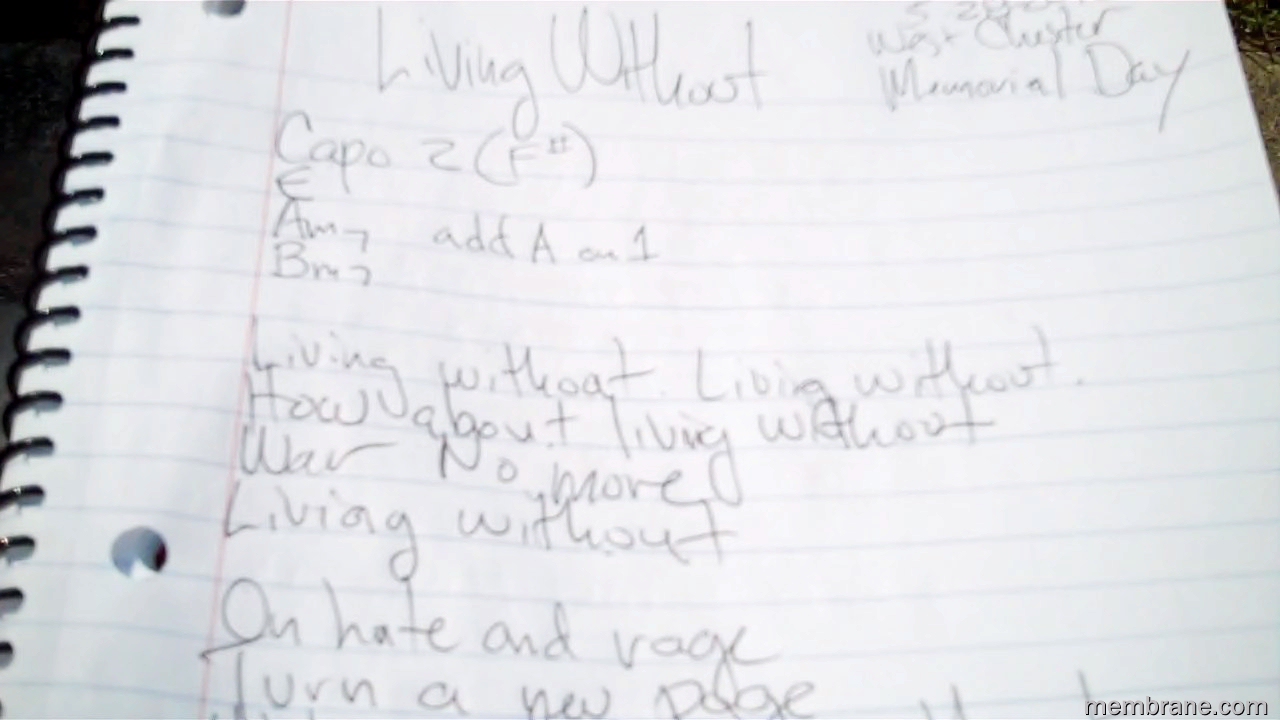 Living Without
West Chester
Memorial Day
Capo 2 (F#)
E
Am7 add A on 1
Bm7
Living without. Living without.
How about living without
War No more
Living without
On hate and rage
Turn a new page
membrane.com